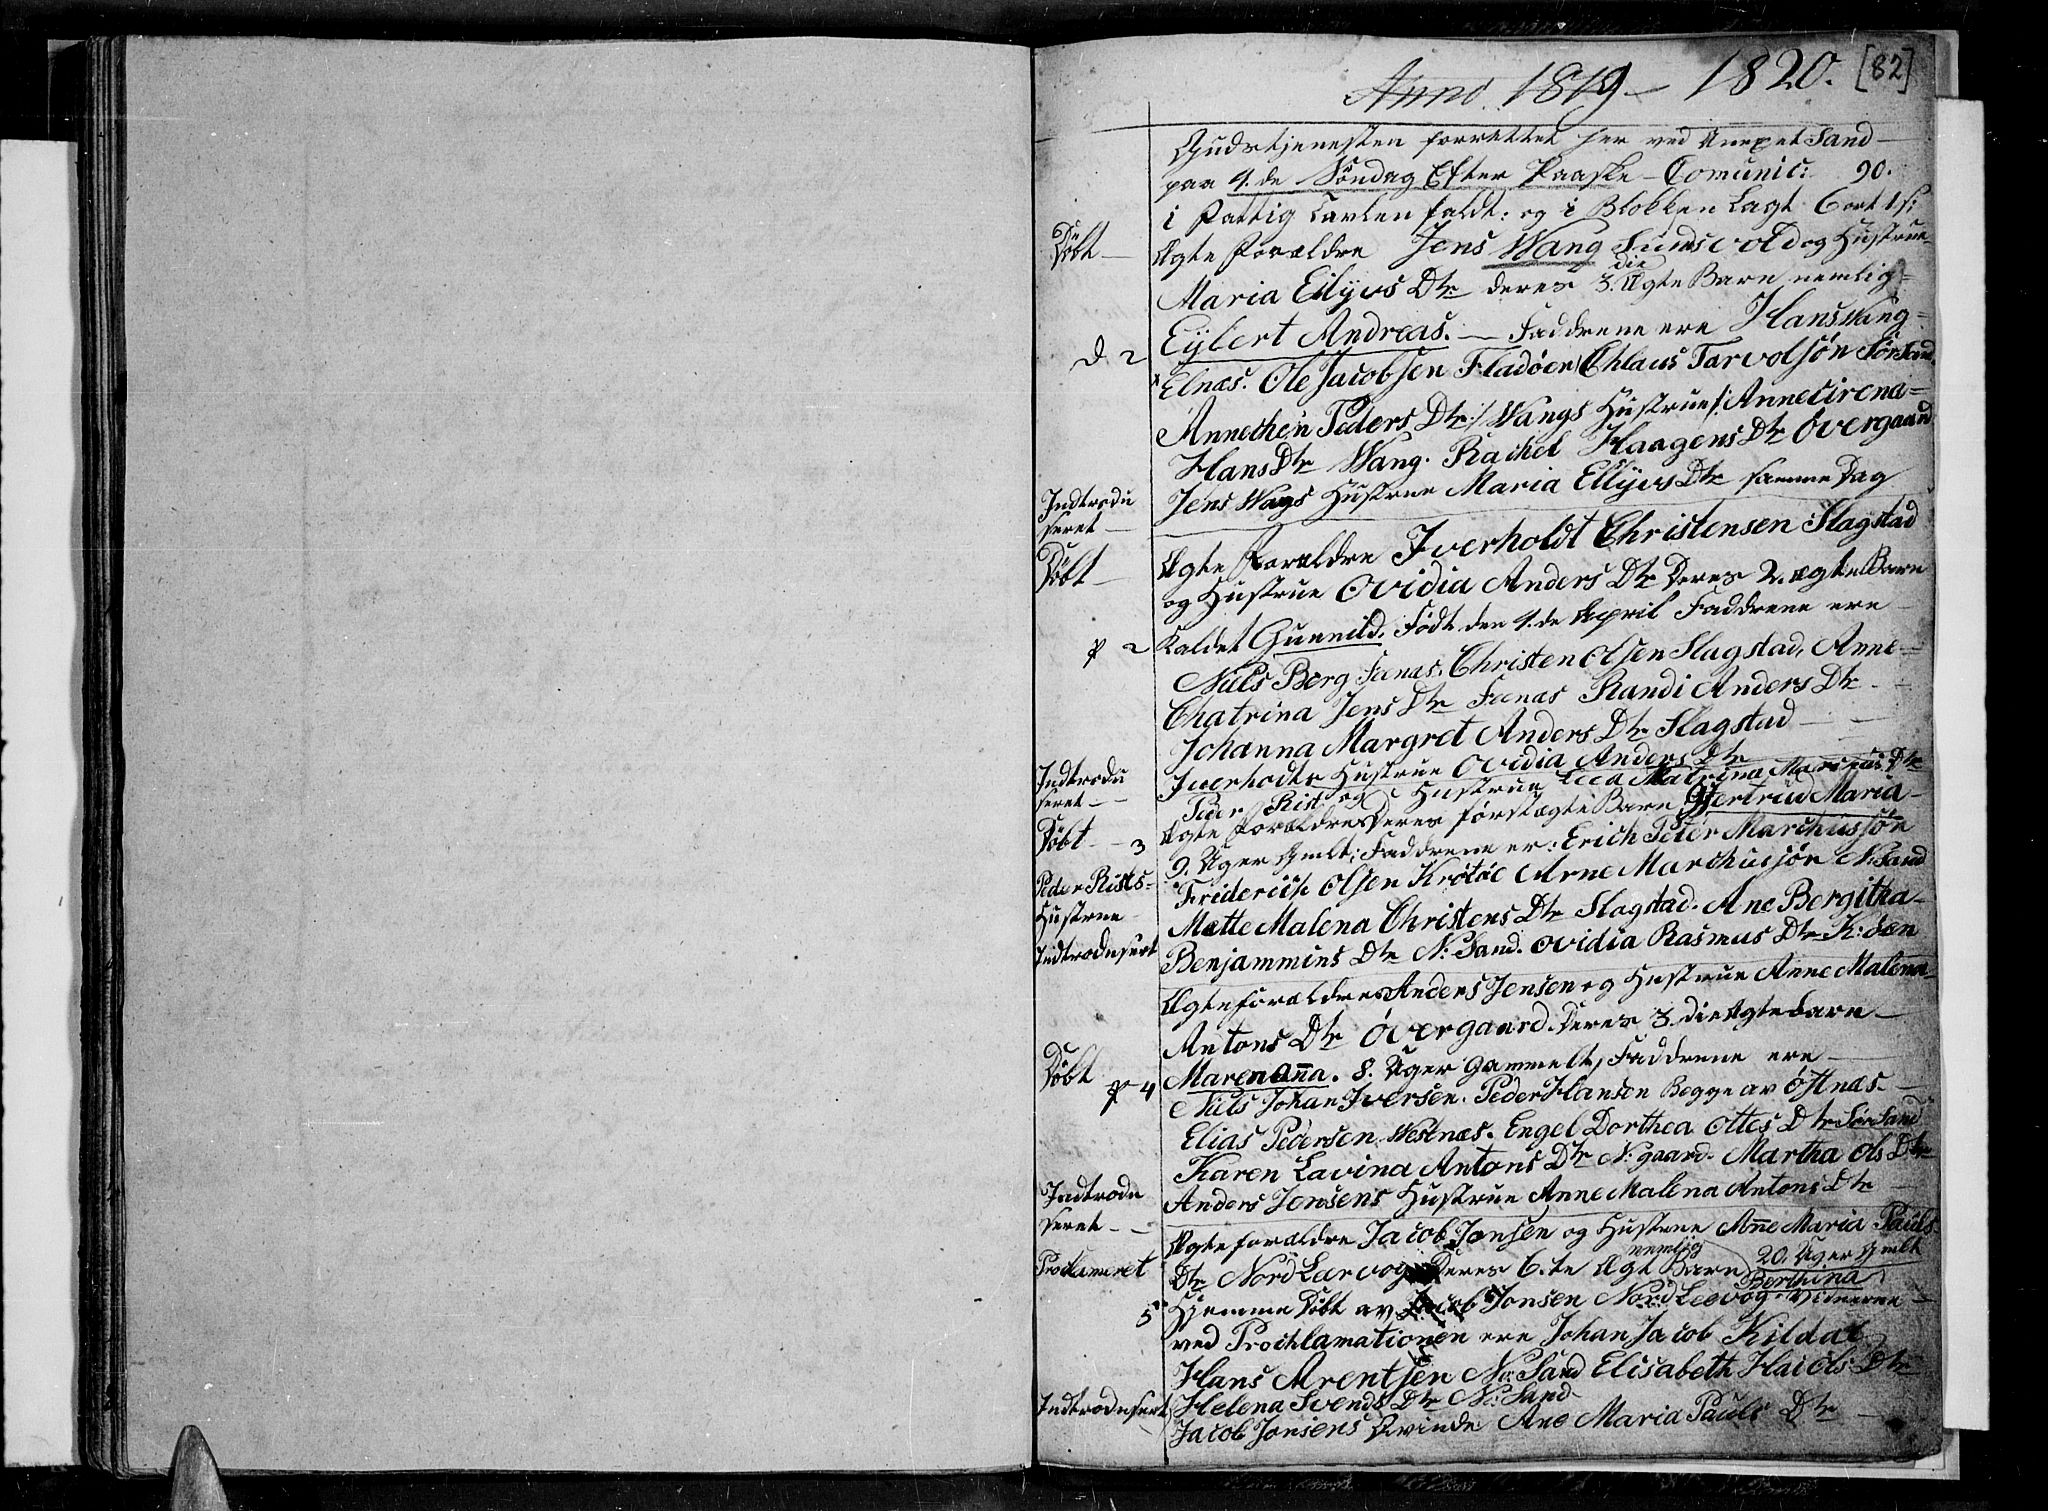 Anno 1819 – 1820. [82]
Gudstjenesten forrettet her ved Anexet Sand
paa 4.de Søndag Efter Paaske – Comunic: 90.
i Fattig Tavlen faldt: og i Blokken Lagt 6 ort 1 s:
Døbt – Ægte Forældre Jens Wang Sundsvold og Hustrue
Maria Eilyvs Dtr deres 3.die Ægte Barn nemlig
d 2 Eylert Andreas. – Faddrene ere Hans Wang
Elnæs. Ole Jacobsen Fladøen Chlaus Tarvolsøn Sørsand.
Annechen Peders Dtr /: Wangs Hustrue :/ Annecirena
Hans Dtr Wang. Rachel Haagens Dtr Overgaard
Indtrodu
seret – Jens Wags Hustrue Maria Ellyvs Dtr samme Dag
Døbt – Ægte Forældre Iverholdt Christensen Slagstad
og Hustrue Ovidia Anders Dtr Deres 2. ægte Barn
p 2 Kaldet Gunnild. Født den 4.de April Faddrene ere
Niels Berg Finnæs. Christen Olsen Slagstad, Anne
Chatrina Jens Dtr Finnæs Randi Anders Dtr
Johanna Margret Anders Dtr Slagstad
Indtrodu
seret – Iverhodts Hustrue Ovidia Anders Dtr
Peder Rist og Hustrue Maarina Marchus Dtr
Døbt – 3 Ægte Forældre Deres første ægte Barn Gjertrud Maria
9. Uger Gmlt: Faddrene er: Erich Peter Marchussøn
Peder Rists Friderich Olsen Krøtøe Arne Marchusjøn N: Sand
Hustrue Mette Malena Christens Dtr Slagstad. Ane Bergitha
Indtroduseret Benjammins Dtr N: Sand. Ovidia Rasmus Dtr K: dæn
Ægte forældre Anders Jensen og Hustrue Anne Malena
Antons Dtr Overgaard. Deres 3.die Ægte barn
Døbt p 4 Maren Anna. 8. Uger Gammelt, Faddrene ere
Niels Johan Iversen. Peder Hansen Begge av Østnæs.
Elias Pedersen Westnæs. Engel Dorthea Ottes Dtr Sørsand
Karen Lavina Antons Dtr N: gaard. Martha Ols Dtr
Indtrodu
seret – Anders Jensens Hustrue Anne Malena Antons Dtr
Ægte forældre Jacob Jonsen og Hustrue Anne Maria Pauls
Proclameret Dtr Nord Lærvog Deres 6.te Ægt Barn nemlig Berthina 20. Uger Gmlt
5 Hjemme Døbt av Jacob Jonsen Nord Leevog. Vidnerne
ved Prochlamationen ere Johan Jacob Kildal
Hans Arentsen No: Sand Elisabeth Hacols Dtr
Helena Svends Dtr No: Sand
Indtroduseret Jacob Jonsens Qvinde Ane Maria Pauls Dtr